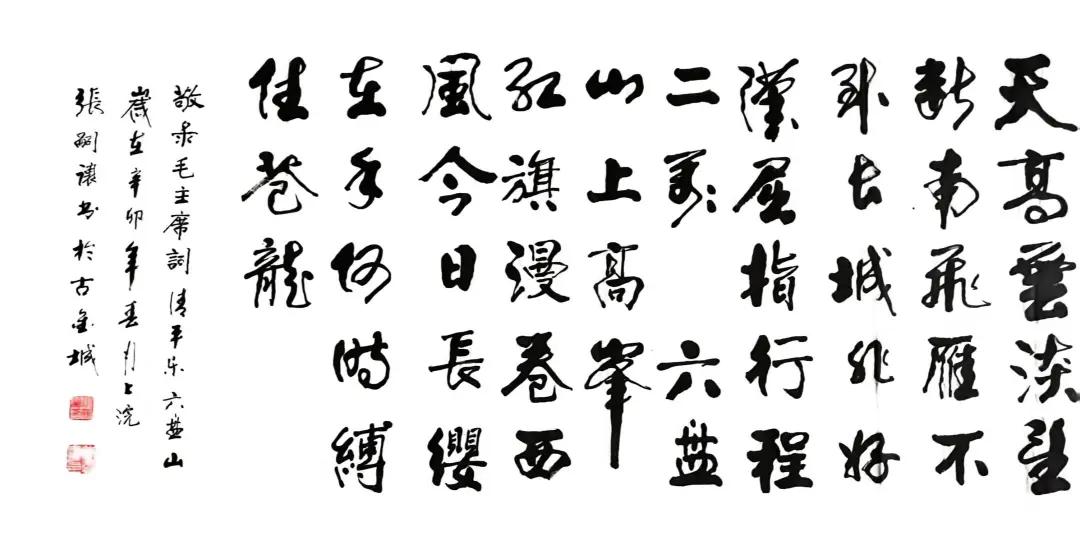 天高雲淡望
斷南飛雁不
到长城非好
漢屈指行程
二萬 六盤
山上高峯
红旗漫卷西
風今日長纓
在手何時縛
住苍龍
敬录毛主席詞清平乐六盤山
歲在辛卯年春月上浣
張嗣讓书於古金城